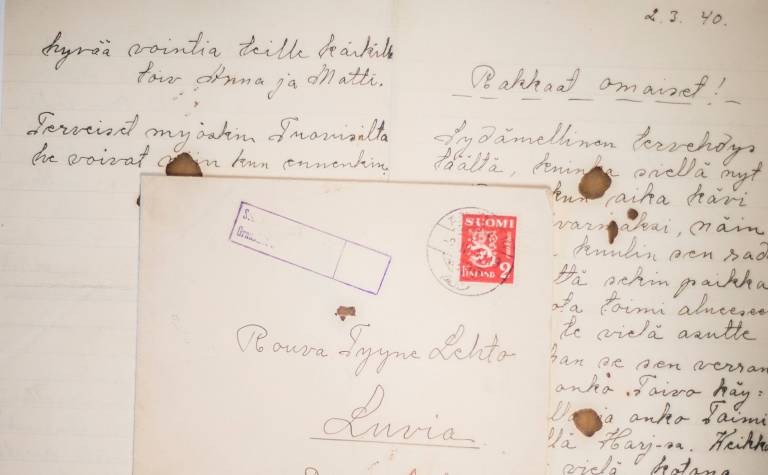 hyvää vointia teille
toiv Anna ja Matti.
Terveiset myöskin Tuovisilta
he voivat niin kun ennenkin.
2.3.40.
Rakkaat omaiset!
Sydämellinen tervehdys
täältä, kuinka siellä nyt
kun aika kävi
näin
kuulin sen
sekin paikka
toimi alueeseen
te vielä asutte
se sen verran
onko Toivo käy=
ja onko Taimi
Harj-sa. Heikki
vielä kotona
SUOMI
FINLAND 2
Rouva Tyyne Lehto
Luvia